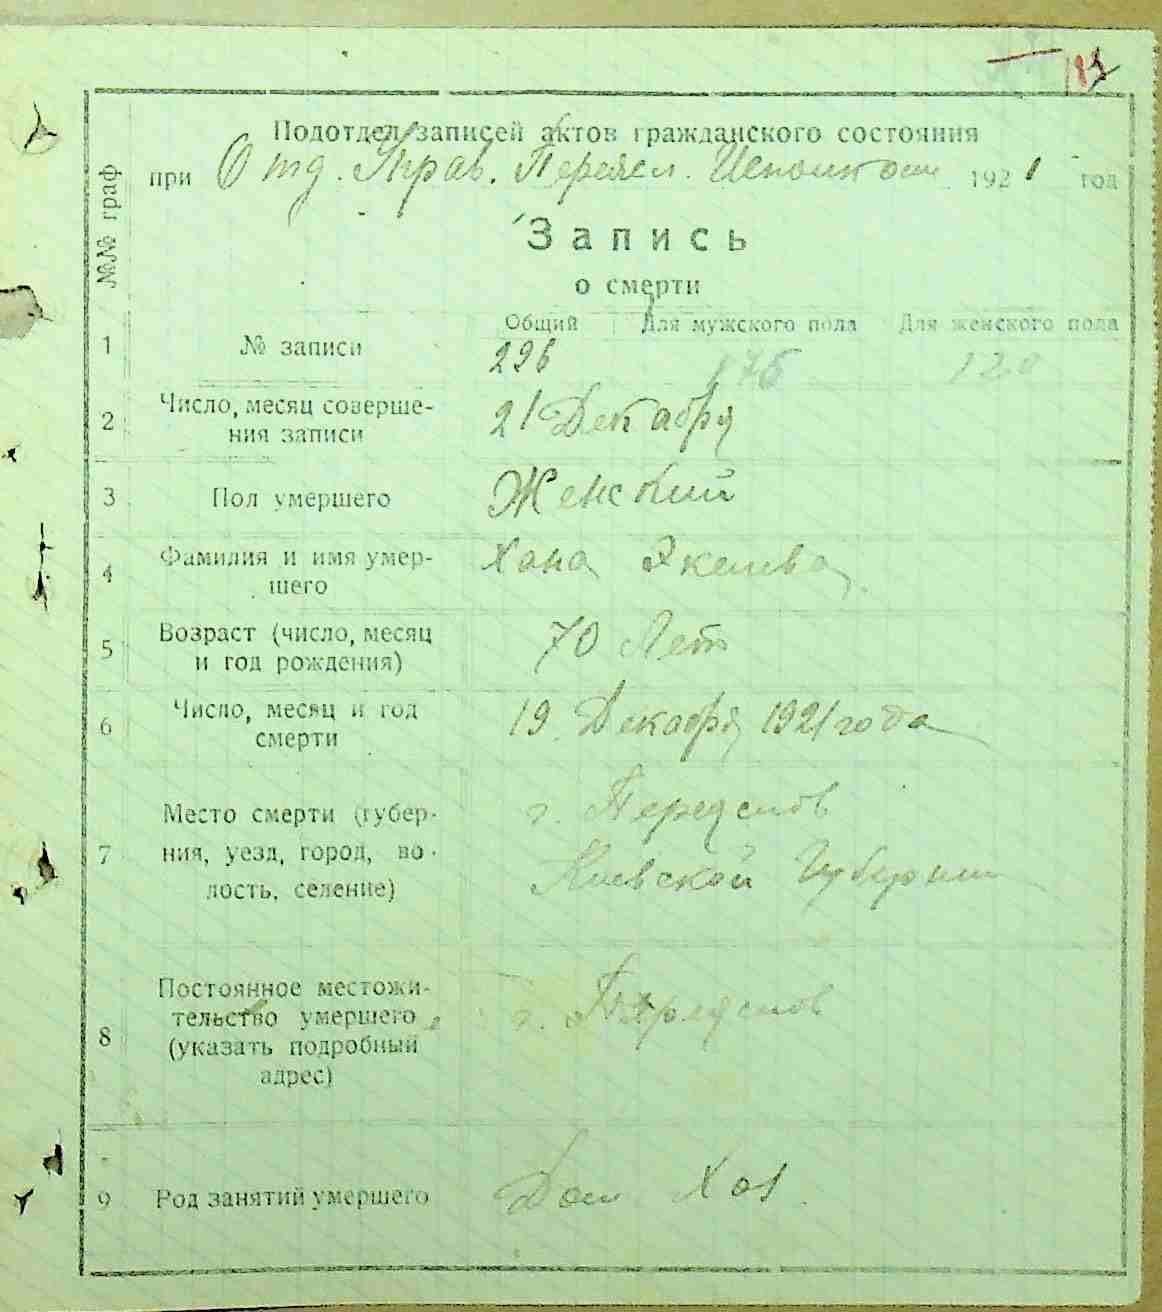 183
Подотдел записей актов гражданского состояния
при Отд. Управ. Переясл. Исполкома 1921 год
№№ граф
Запись
о смерти
Общий Для мужского пола Для женского пола
1 № записи 296 176 120
2 Число, месяц соверше-
ния записи 21 Декабря
3 Пол умершего Женский
4 Фамилия и имя умер-
шего Хана
5 Возраст (число, месяц
и год рождения) 70 Лет
6 Число, месяц и год
смерти 19 Декабря 1921 года
7 Место смерти (губер-
ния, уезд, город, во-
лость, селение) г. Переяслов
Киевской Губернии
8 Постоянное местожи-
тельство умершего
(указать подробный
адрес) г. Переяслов
9 Род занятий умершего Дом Хоз.